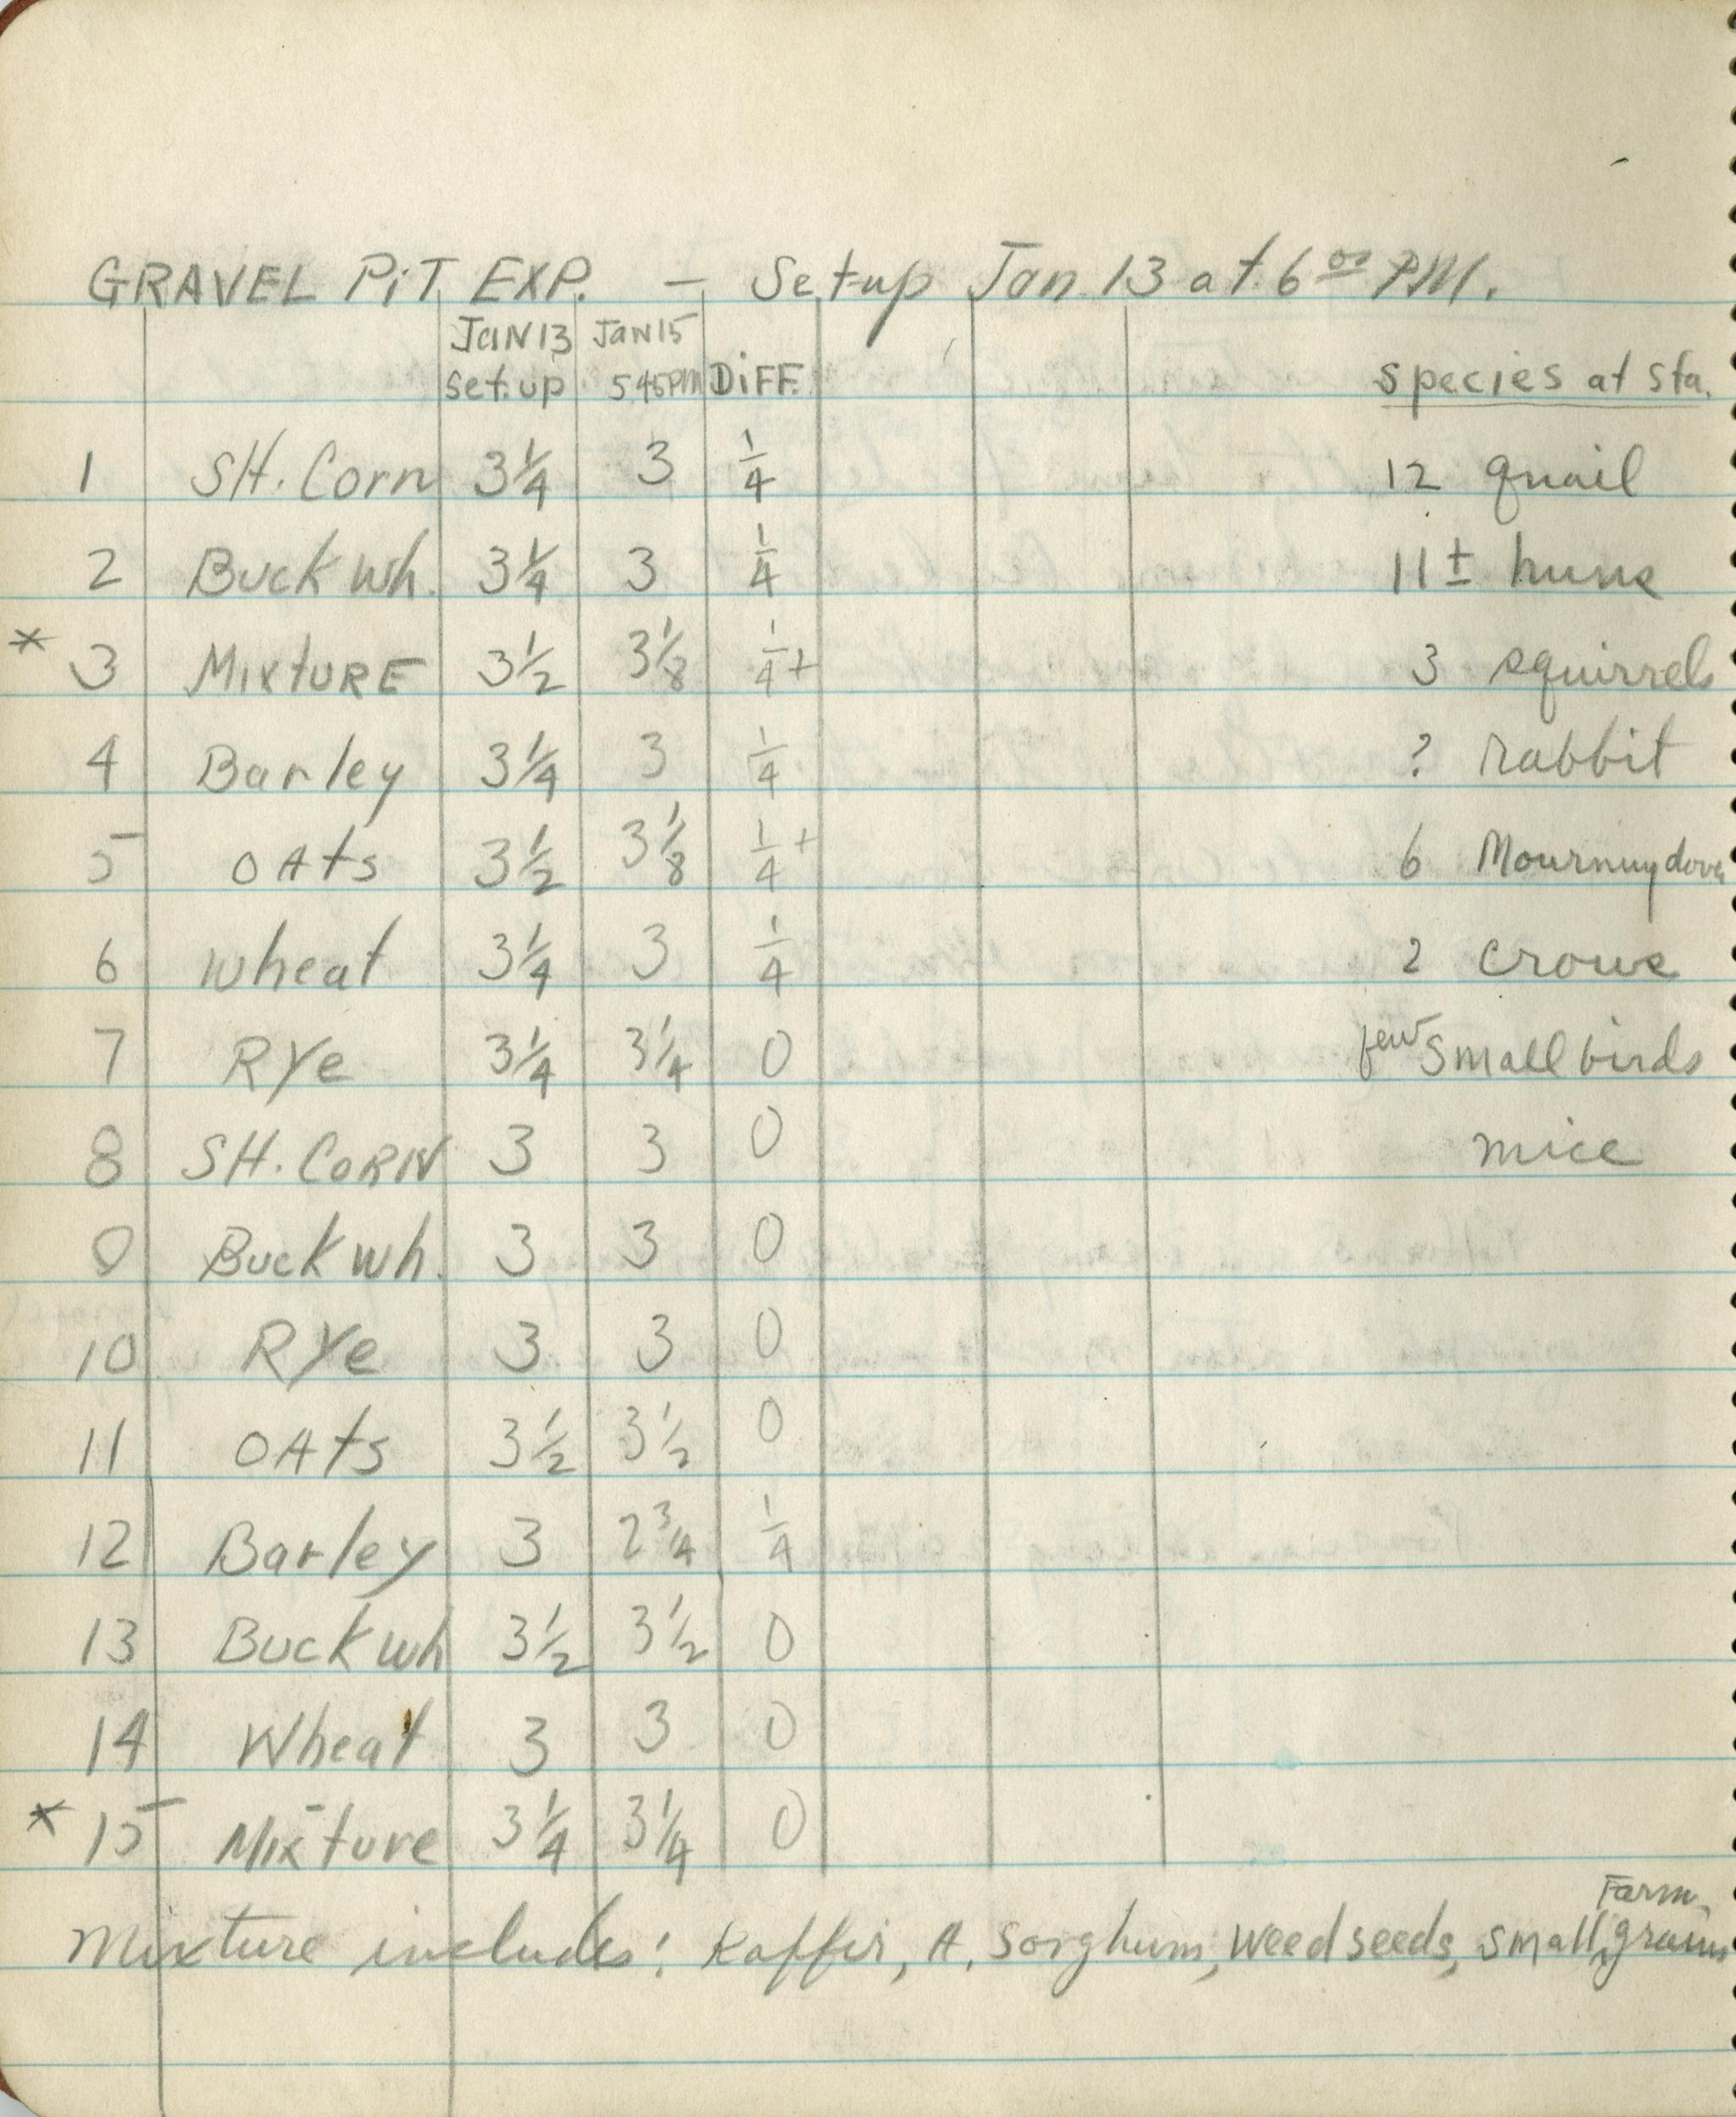 GRAVEL PiT EXP. — Set-up Jan 13 at 6 00 PM.
JAN 13 JAN 15
set.up 5 45 PM DiFF. Species at Sta.
1 SH. Corn 3 1/4 3 1/4 12 quail
2 Buck wh. 3 1/4 3 1/4 11 ± huns
* 3 MixtURE 3 1/2 3 1/8 1/4 + 3 squirrels
4 Barley 3 1/4 3 1/4 ? rabbit
5 OAts 3 1/2 3 1/8 1/4 + 6 Mourning doves
6 wheat 3 1/4 3 1/4 2 crows
7 RYe 3 1/4 3 1/4 0 few small birds
8 SH. CORN 3 3 0 mice
9 Buck wh. 3 3 0
10 RYe 3 3 0
11 OAts 3 1/2 3 1/2 0
12 Barley 3 2 3/4 1/4
13 Buck wh 3 1/2 3 1/2 0
14 Wheat 3 3 0
* 15 Mixture 3 1/4 3 1/4 0
Mixture includes: Kaffir, A. Sorghum, weed seeds, small Farm grains